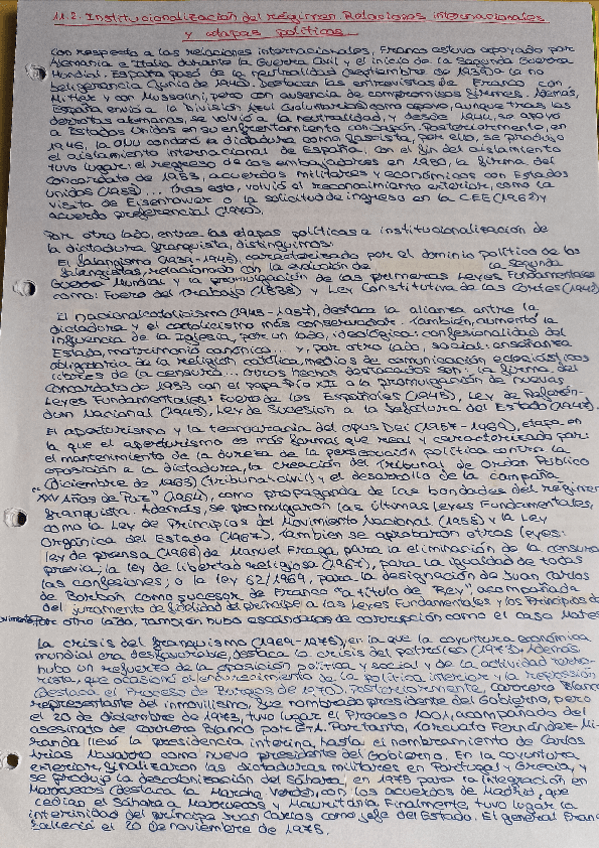 11.2. Institucionalización del régimen. Relaciones internacionales
y etapas políticas
Con respecto a las relaciones internacionales, Franco estuvo apoyado por
Alemania e Italia durante la Guerra Civil y el inicio de la Segunda Guerra
Mundial. España pasó de la neutralidad (septiembre de 1939) a la no
beligerancia (junio de 1940). Destacan las entrevistas de Franco con
Hitler y con Mussolini, pero con ausencia de compromisos firmes. Además,
España envió a la División Azul (voluntarios) como apoyo, aunque tras las
derrotas alemanas, se volvió a la neutralidad, y desde 1944, se apoyó
a Estados Unidos en su enfrentamiento con Japón. Posteriormente, en
1946, la ONU condenó a dictadura como fascista, por ello, se produjo
el aislamiento internacional de España. Con el fin del aislamiento
tuvo lugar: el regreso de los embajadores en 1950, la firma del
Concordato de 1953, acuerdos militares y económicos con Estados
Unidos (1953)... Tras esto, volvió el reconocimiento exterior, como la
visita de Eisenhower o la solicitud de ingreso en la CEE (1962) y
acuerdo preferencial (1970).
Por otro lado, entre las etapas políticas e institucionalización de
la dictadura franquista, distinguimos:
El falangismo (1939-1945), caracterizado por el dominio político de los
falangistas, relacionado con la evolución de la Segunda
Guerra Mundial y la promulgación de las primeras Leyes Fundamentales
como: Fuero del Trabajo (1938) y Ley Constitutiva de las Cortes (1942)
El nacionalcatolicismo (1945-1957), destaca la alianza entre la
dictadura y el catolicismo más conservador. También, aumentó la
influencia de la Iglesia, por un lado, ideológica: confesionalidad del
Estado, matrimonio canónico... y, por otro lado, social: enseñanza
obligatoria de la religión católica, medios de comunicación eclesiásticos
libres de la censura... Otros hechos destacados son: la firma del
Concordato de 1953 con el papa Pío XII a la promulgación de nuevas
Leyes Fundamentales: Fuero de los Españoles (1945), Ley de Referén-
dum Nacional (1945), Ley de Sucesión a la Jefatura del Estado (1947).
El aperturismo y la tecnocracia del Opus Dei (1957-1969), etapa en
la que el aperturismo es más formas que real y caracterizado por:
el mantenimiento de la dureza de la persecución política contra la
oposición a la dictadura, la creación del Tribunal de Orden Público
(diciembre de 1963) (tribunal civil) y el desarrollo de la campaña
"XXV Años de Paz" (1964), como propaganda de las bondades del régimen
franquista. Además, se promulgaron las últimas Leyes Fundamentales,
como la Ley de Principios del Movimiento Nacional (1958) y la Ley
Orgánica del Estado (1967). También se aprobaron otras leyes:
ley de prensa (1966) de Manuel Fraga, para la eliminación de la censura
previa; la ley de libertad religiosa (1967), para la igualdad de todas
las confesiones; o la ley 62/1969, para la designación de Juan Carlos
de Borbón como sucesor de Franco "a título de Rey" acompañada
del juramento de fidelidad del príncipe a las Leyes Fundamentales y los Principios del
Movimiento. Por otro lado, también hubo escándalos de corrupción como el caso Matesa
La crisis del franquismo (1969-1975), en la que la coyuntura económica
mundial era desfavorable, destaca la crisis del petróleo (1973). Además
hubo un refuerzo de la oposición política y social y de la actividad terro-
rista, que ocasionó el endurecimiento de la política interior y la represión
(destaca el Proceso de Burgos de 1970). Posteriormente, Carrero Blanco
representante del inmovilismo, fue nombrado presidente del Gobierno, pero
el 20 de diciembre de 1973, tuvo lugar el Proceso 1001, acompañado del
asesinato de Carrero Blanco por ETA. Por tanto, Torcuato Fernández-Mi-
randa llevó la presidencia interina hasta el nombramiento de Carlos
Arias Navarro como nuevo presidente del Gobierno. En la coyuntura
exterior, finalizaron las dictaduras militares en Portugal y Grecia, y
se produjo la descolonización del Sáhara, en 1975 para la integración en
Marruecos (destaca la Marcha Verde), con los acuerdos de Madrid, que
cedían el Sáhara a Marruecos y Mauritania. Finalmente, tuvo lugar la
interinidad del príncipe Juan Carlos como jefe del Estado. El general Franco
falleció el 20 de noviembre de 1975.